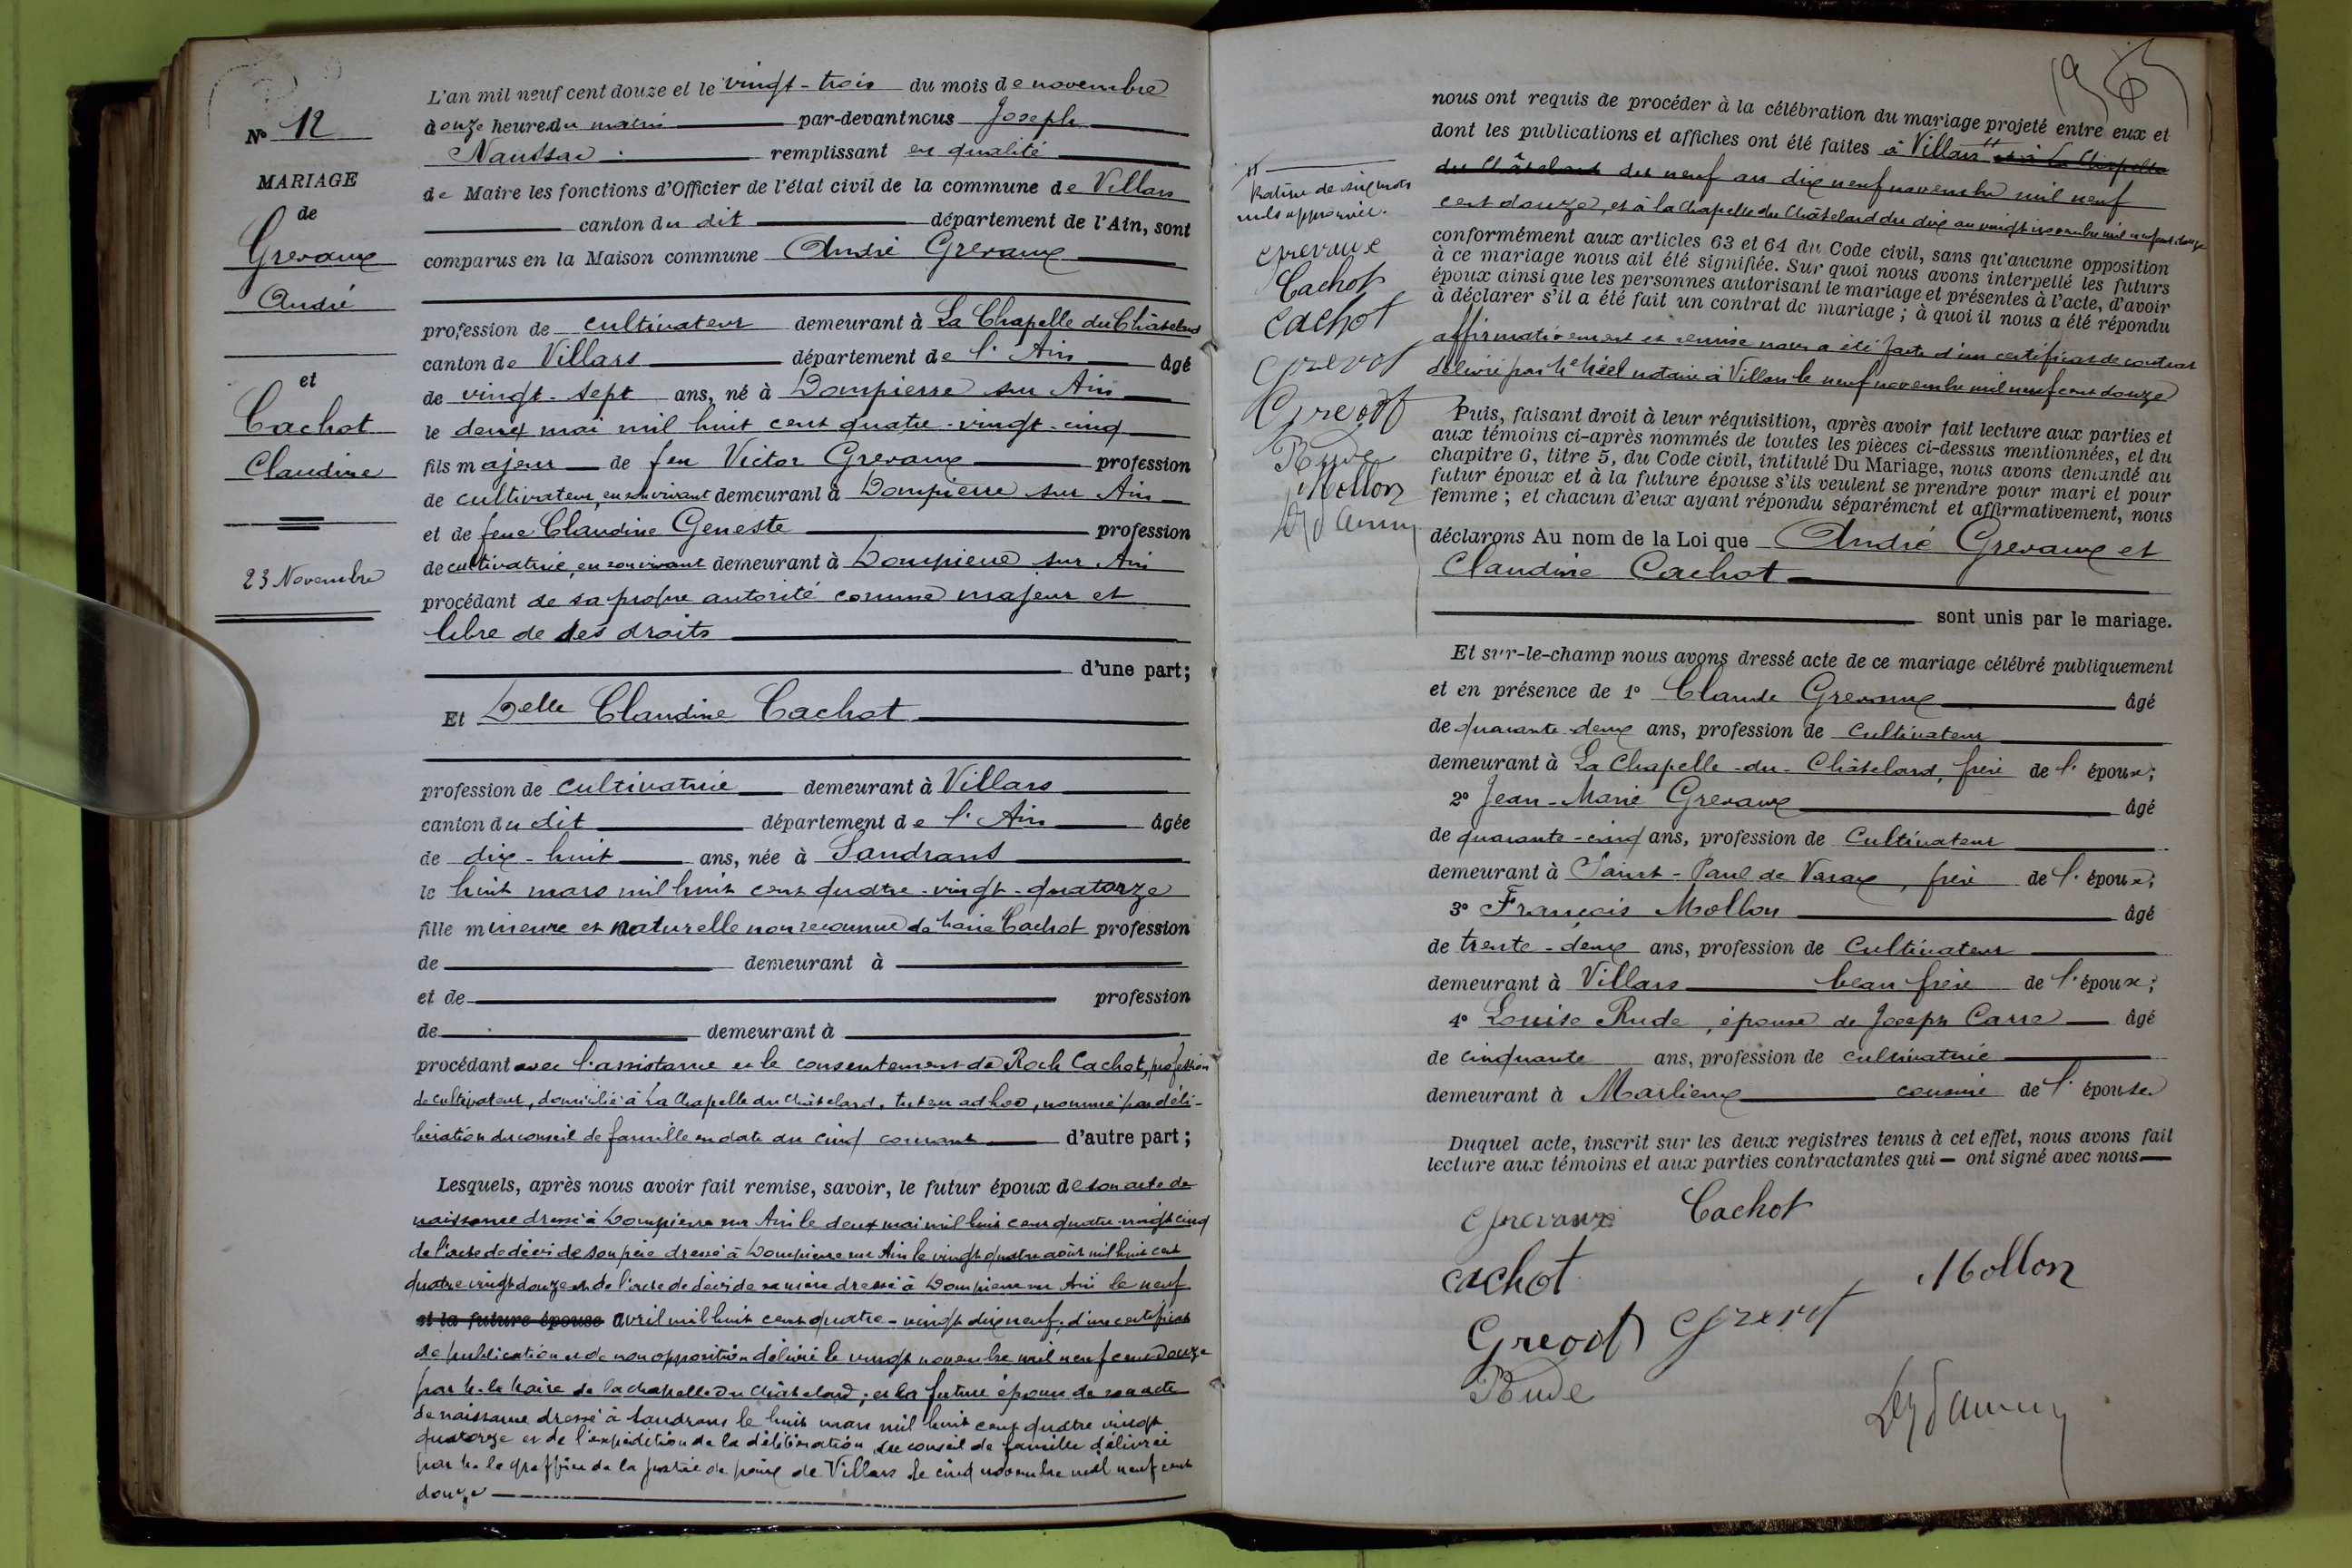 N° 12
MARIAGE
de
Grevaux
André
et
Cachot
Claudine
23 Novembre
L'an mil neuf cent douze et le vingt-trois du mois de novembre
à onze heures du matin par-devant nous Joseph
remplissant en qualité
de Maire les fonctions d'Officier de l'état civil de la commune de Villars
canton du dit département de l'Ain, sont
comparus en la Maison commune André Grevaux
profession de cultivateur demeurant à La Chapelle du Châtelard
canton de Villars département de l'Ain âgé
de vingt-sept ans, né à Dompierre sur Ain
le deux mai mil huit cent quatre-vingt-cinq
fils majeur de feu Victor Grevaux profession
de cultivateur, en son vivant demeurant à Dompierre sur Ain
et de feue Claudine Geneste profession
de cultivatrice, en son vivant demeurant à Dompierre sur Ain
procédant de sa propre autorité comme majeur et
libre de ses droits
d'une part;
Et Delle Claudine Cachot
profession de cultivatrice demeurant à Villars
canton du dit département de l'Ain âgée
de dix-huit ans, née à Sandrans
le huit mars mil huit cent quatre-vingt-quatorze
fille mineure et naturelle non reconnue de Marie Cachot profession
de demeurant à
et de profession
de demeurant à
procédant avec l'assistance et le consentement de Roch Cachot, profession
de cultivateur, domicilié à La Chapelle du Châtelard, tuteur ad hoc, nommé par déli-
bération du conseil de famille en date du cinq courant d'autre part;
Lesquels, après nous avoir fait remise, savoir, le futur époux de son acte de
naissance dressé à Dompierre sur Ain le deux mai mil huit cent quatre-vingt cinq
de l'acte de décès de son père dressé à Dompierre sur Ain le vingt quatre août mil huit cent
quatre vingt douze et de l'acte de décès de sa mère dressé à Dompierre sur Ain le neuf
et la future épouse avril mil huit cent quatre-vingt dix neuf, d'un certificat
de publication et de non opposition délivré le vingt novembre mil neuf cent douze
par M. le Maire de la Chapelle du Châtelard; et la future épouse de son acte
de naissance dressé à Sandrans le huit mars mil huit cent quatre vingt
quatorze et de l'expédition de la délibération du conseil de famille délivrée
par M. le greffier de la justice de paix de Villars le cinq novembre mil neuf cent
douze
nous ont requis de procéder à la célébration du mariage projeté entre eux et
dont les publications et affiches ont été faites à Villars et à La Chapelle
du Châtelard du neuf au dix neuf novembre mil neuf
cent douze, et à la Chapelle du Châtelard du dix au vingt novembre mil neuf cent douze
conformément aux articles 63 et 64 du Code civil, sans qu'aucune opposition
à ce mariage nous ait été signifiée. Sur quoi nous avons interpellé les futurs
époux ainsi que les personnes autorisant le mariage et présentes à l'acte, d'avoir
à déclarer s'il a été fait un contrat de mariage; à quoi il nous a été répondu
affirmativement et remise nous a été faite d'un certificat de contrat
délivré par Me notaire à Villars le neuf novembre mil neuf cent douze
Puis, faisant droit à leur réquisition, après avoir fait lecture aux parties et
aux témoins ci-après nommés de toutes les pièces ci-dessus mentionnées, et du
chapitre 6, titre 5, du Code civil, intitulé Du Mariage, nous avons demandé au
futur époux et à la future épouse s'ils veulent se prendre pour mari et pour
femme; et chacun d'eux ayant répondu séparément et affirmativement, nous
déclarons Au nom de la Loi que André Grevaux et
Claudine Cachot
sont unis par le mariage.
Et sur-le-champ nous avons dressé acte de ce mariage célébré publiquement
et en présence de 1° Claude Grevaux âgé
de quarante-deux ans, profession de cultivateur
demeurant à La Chapelle-du-Châtelard, frère de l'époux;
2° Jean-Marie Grevaux âgé
de quarante-cinq ans, profession de Cultivateur
demeurant à Saint-Paul de Varax, frère de l'époux;
3° François Mollon âgé
de trente-deux ans, profession de Cultivateur
demeurant à Villars beau frère de l'époux;
4° Louise Rude, épouse de Joseph Carre âgé
de cinquante ans, profession de cultivatrice
demeurant à Marlieux cousine de l'épouse
Duquel acte, inscrit sur les deux registres tenus à cet effet, nous avons fait
lecture aux témoins et aux parties contractantes qui — ont signé avec nous
Grevaux Cachot
Cachot Mollon
Rude
Rature de six mots
nuls approuvée.
Grevaux
Cachot
Cachot
Rude
Mollon